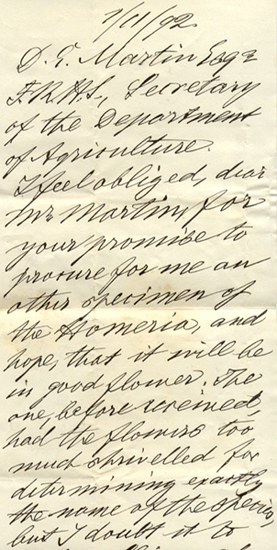 7/11/92.
D. E. Martin Esqr
F.R.H.S., Secretary
of the Department
of Agriculture.
I feel obliged, dear
Mr Martin, for
your promise to
procure for me an
other specimen of
the Homeria, and
hope, that it will be
in good flower. The
one, before received,
had the flowers too
much shrivelled for
determining exactly
the name of the species,
but I doubt it to